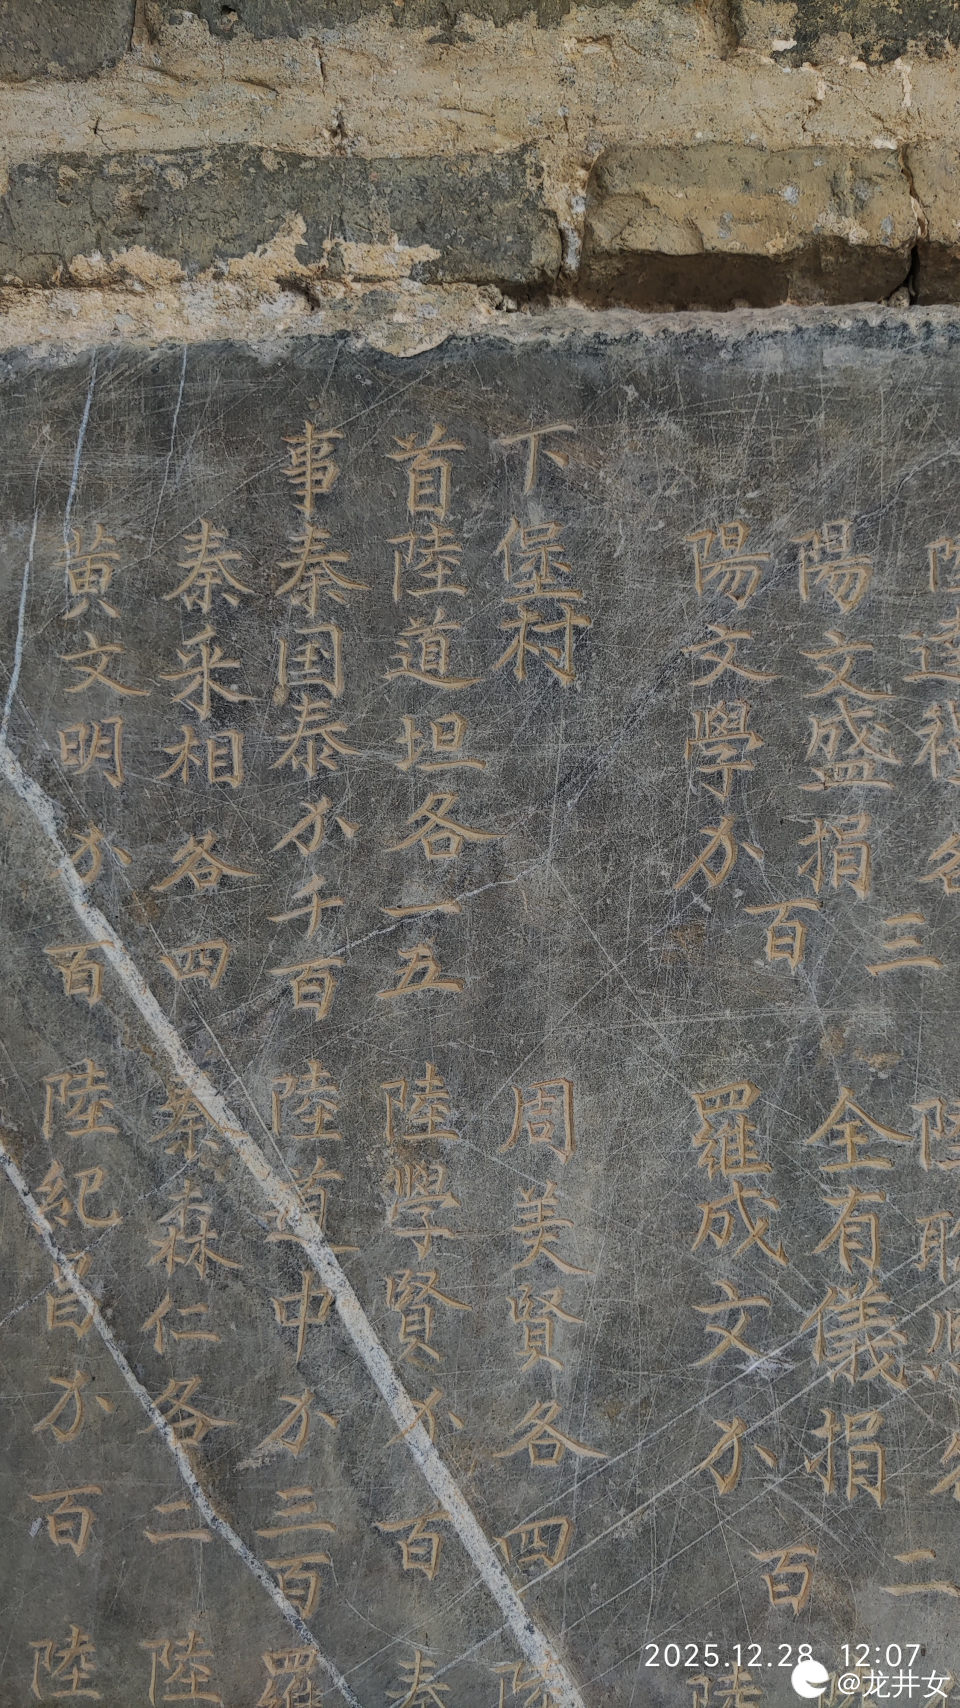 陽文盛捐三 全有儀捐二
陽文學尒百 羅成文尒百 陸
下堡村 周美賢各四 陸
首陸道坦各一五 陸學賢尒百 秦
事秦国泰尒千百 陸道中尒三百 羅
秦采相各四 秦森仁各二 陸
黄文明尒百 陸紀昌尒百 陸
2025.12.28 12:07
@龙井女